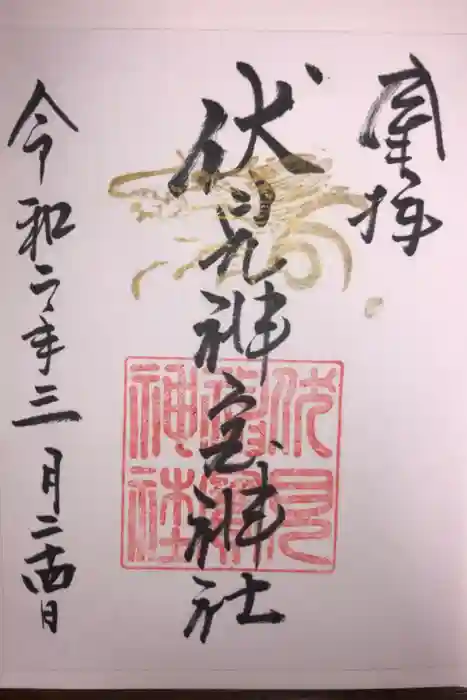 奉拝
伏見神宝神社
令和二年三月二十四日
伏見
神社